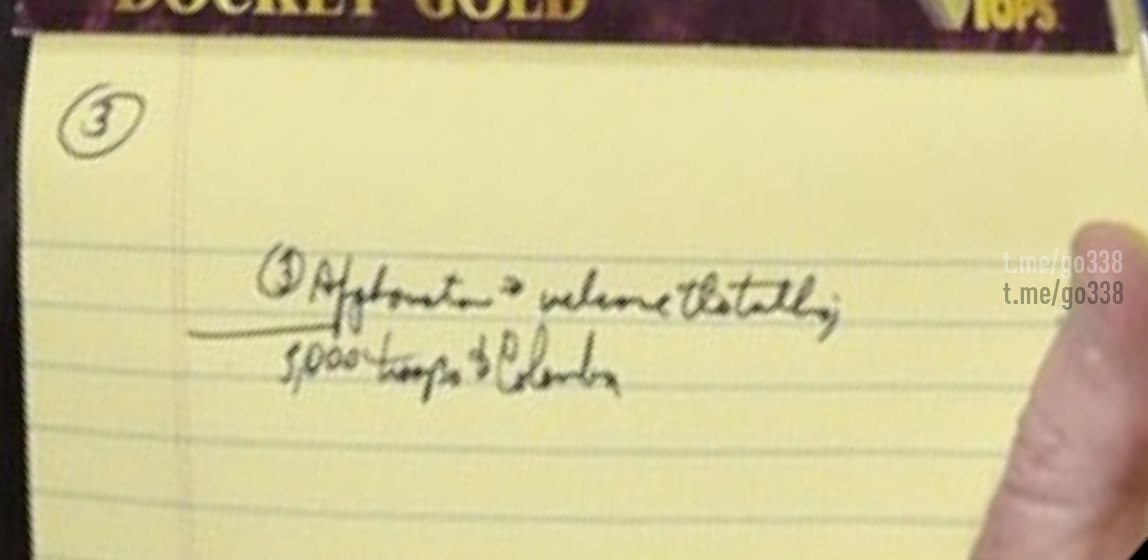 DOCKET GOLD
TOPS
3
t.me/go338
t.me/go338
① Afghanistan → welcome the talks;
5,000 troops to Colombia